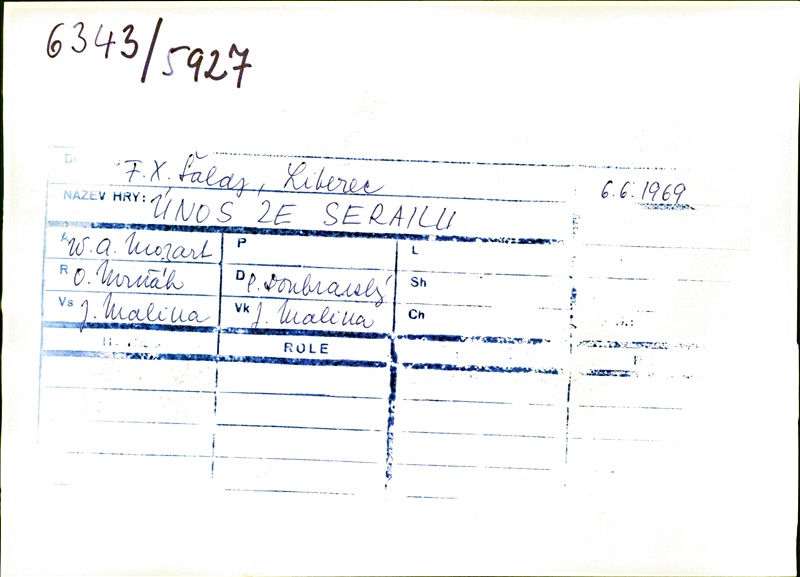 6343/5927
D
F. X. Šaldy, Liberec
6.6.1969
NÁZEV HRY: ÚNOS ZE SERAILU
A W. A. Mozart P L
R O. D P. Doubravský Sh
Vs J. Malina Vk J. Malina Ch
ROLE